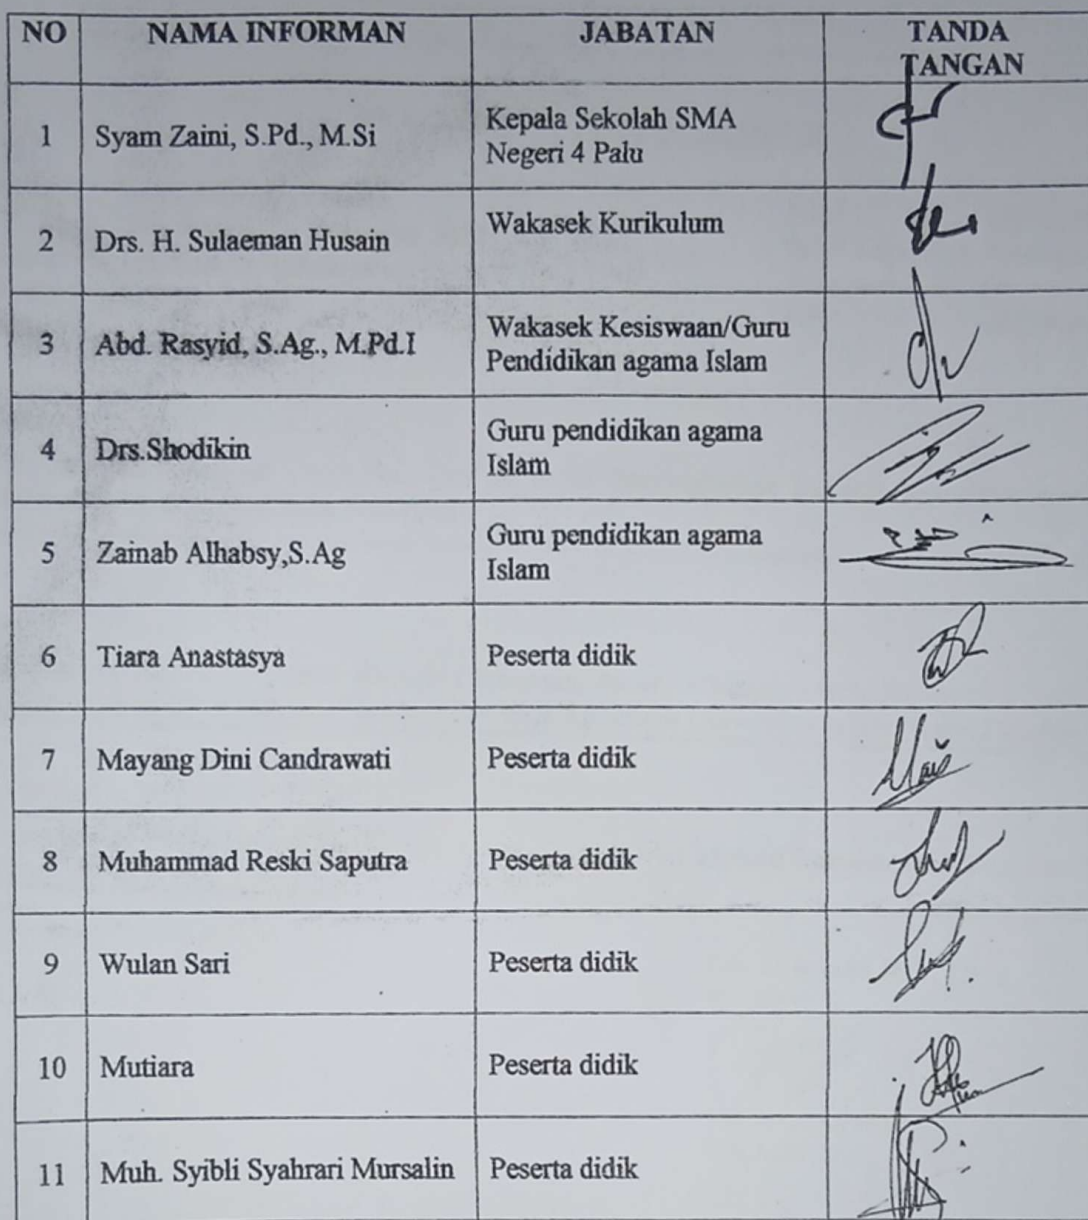 NO NAMA INFORMAN JABATAN TANDA
TANGAN
1 Syam Zaini, S.Pd., M.Si Kepala Sekolah SMA
Negeri 4 Palu
2 Drs. H. Sulaeman Husain Wakasek Kurikulum
3 Abd. Rasyid, S.Ag., M.Pd.I Wakasek Kesiswaan/Guru
Pendidikan agama Islam
4 Drs.Shodikin Guru pendidikan agama
Islam
5 Zainab Alhabsy,S.Ag Guru pendidikan agama
Islam
6 Tiara Anastasya Peserta didik
7 Mayang Dini Candrawati Peserta didik
8 Muhammad Reski Saputra Peserta didik
9 Wulan Sari Peserta didik
10 Mutiara Peserta didik
11 Muh. Syibli Syahrari Mursalin Peserta didik